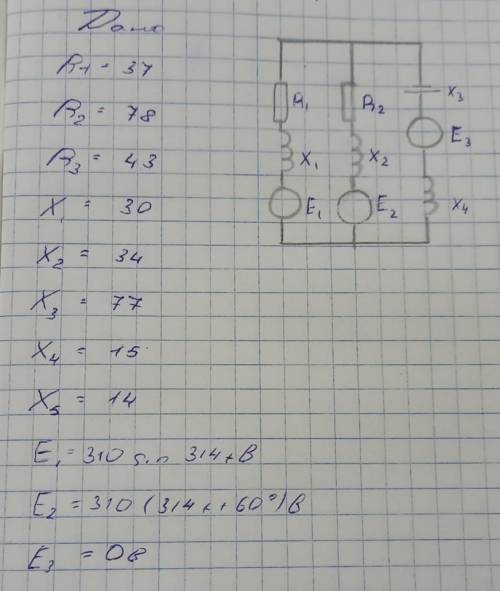 Дано
R1 = 37
R2 = 78
R3 = 43
X1 = 30
X2 = 34
X3 = 77
X4 = 15
X5 = 14
E1 = 310 sin 314t В
E2 = 310 (314t + 60°) В
E3 = 0 в
R1
R2
X3
E3
X1
X2
E1
E2
X4